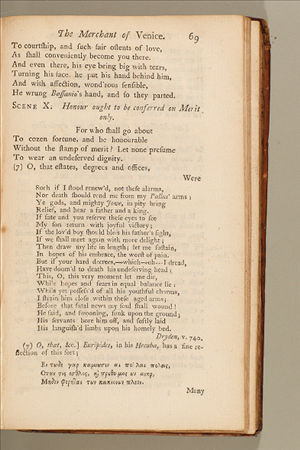 The Merchant of Venice. 69
To courtship, and such fair ostents of love,
As shall conveniently become you there.
And even there, his eye being big with tears,
Turning his face, he put his hand behind him,
And with affection, wond'rous sensible,
He wrung Bassanio's hand, and so they parted.
SCENE X. Honour ought to be conferred on Merit
only.
For who shall go about
To cozen fortune, and be honourable
Without the stamp of merit? Let none presume
To wear an undeserved dignity.
(7) O, that estates, degrees and offices,
Were
Such if I stood renew'd, not these alarms,
Nor death should rend me from my Pallas' arms:
Ye gods, and mighty Jove, in pity bring
Relief, and hear a father and a king.
If fate and you reserve these eyes to see
My son return with joyful victory;
If the lov'd boy should bless his father's sight,
If we shall meet again with more delight;
Then draw my life in length; let me sustain,
In hopes of his embrace, the worst of pain.
But if your hard decrees,—which—oh—I dread,
Have doom'd to death his undeserving head;
This, O, this very moment let me die,
While hopes and fears in equal balance lie:
While yet possess'd of all his youthful charms,
I strain him close within these aged arms;
Before that fatal news my soul shall wound!
He said, and swooning, sunk upon the ground;
His servants bore him off, and softly laid
His languish'd limbs upon his homely bed.
Dryden, v. 740.
(7) O, that, &c.] Euripides, in his Hecuba, has a fine re-
flection of this sort;
Εν τωδε γαρ καμνουσιν αι πολλαι πολεις,
Οταν τις εσθλος, η προθυμος ων ανηρ,
Μηδεν φερηται των κακιονων πλεον.
Many